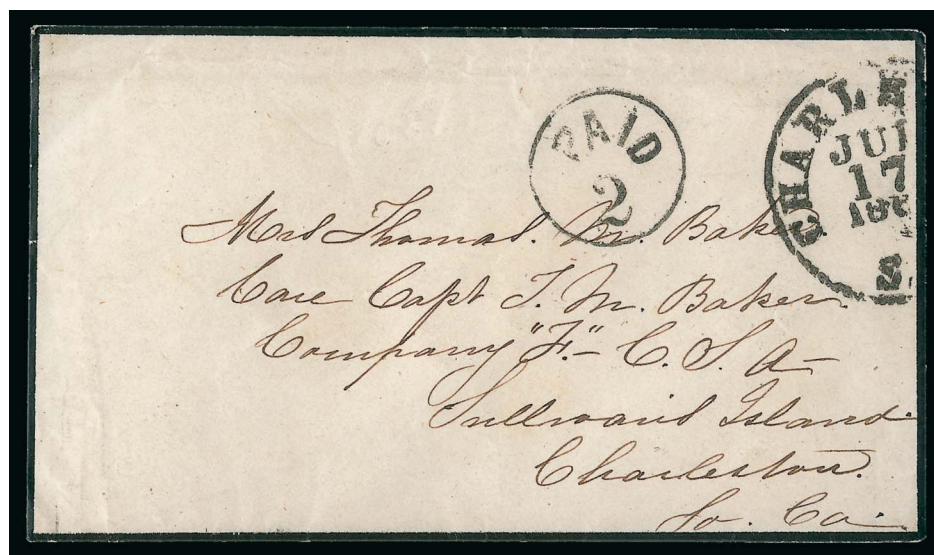 PAID
2
CHARLE
JUL
17
186
S.
Mrs Thomas. M. Baker
Care Capt T. M. Baker.
Company "F." - C. S. A -
Sullivans Island.
Charleston.
So. Ca.